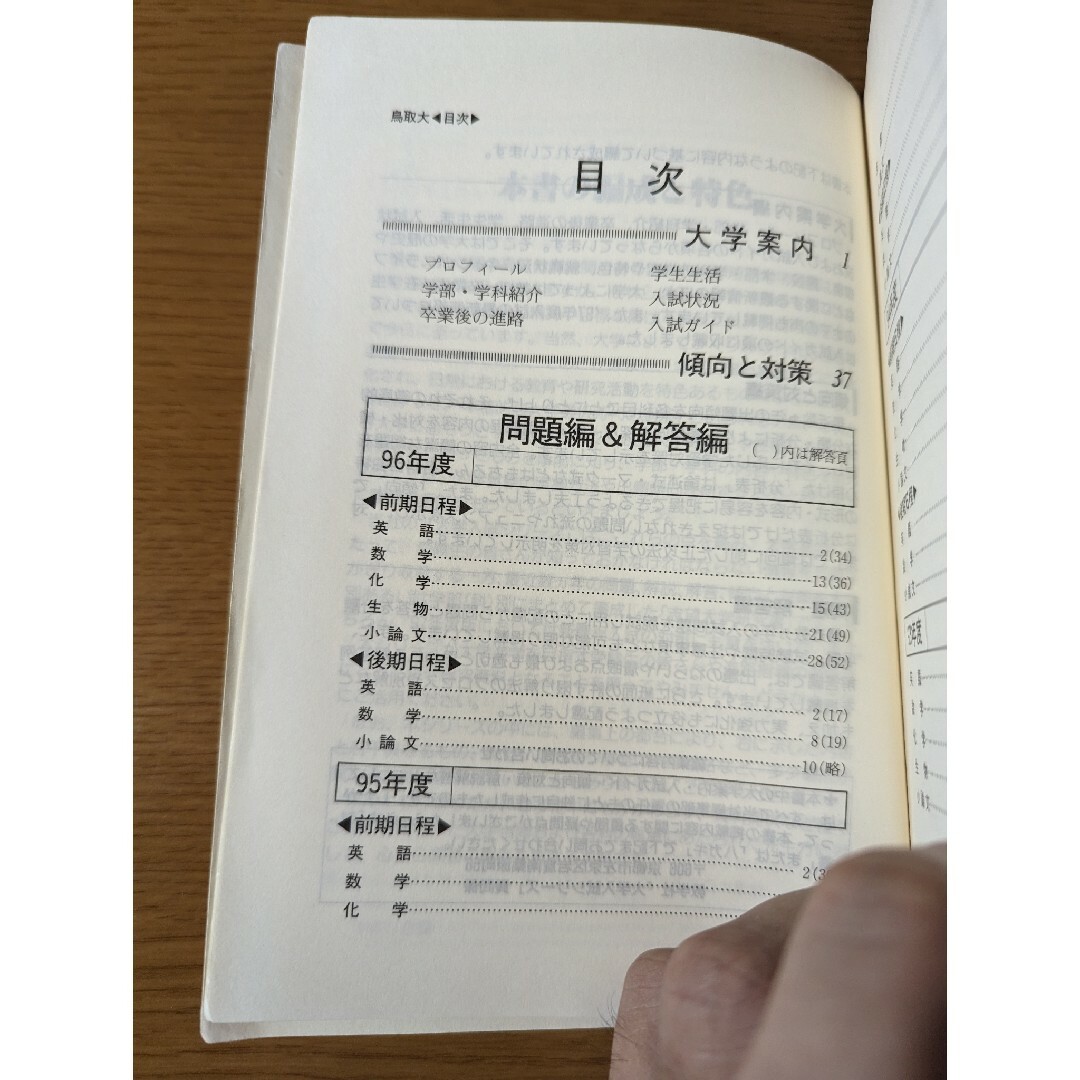 鳥取大◀目次▶
目次
大学案内 1
プロフィール 学生生活
学部・学科紹介 入試状況
卒業後の進路 入試ガイド
傾向と対策 37
問題編＆解答編 ( )内は解答頁
96年度
◀前期日程▶
英語……2(34)
数学……13(36)
化学……15(43)
生物……21(49)
小論文……28(52)
◀後期日程▶
英語……2(17)
数学……8(19)
小論文……10(略)
95年度
◀前期日程▶
英語……2(3
数学……
化学……
3年度